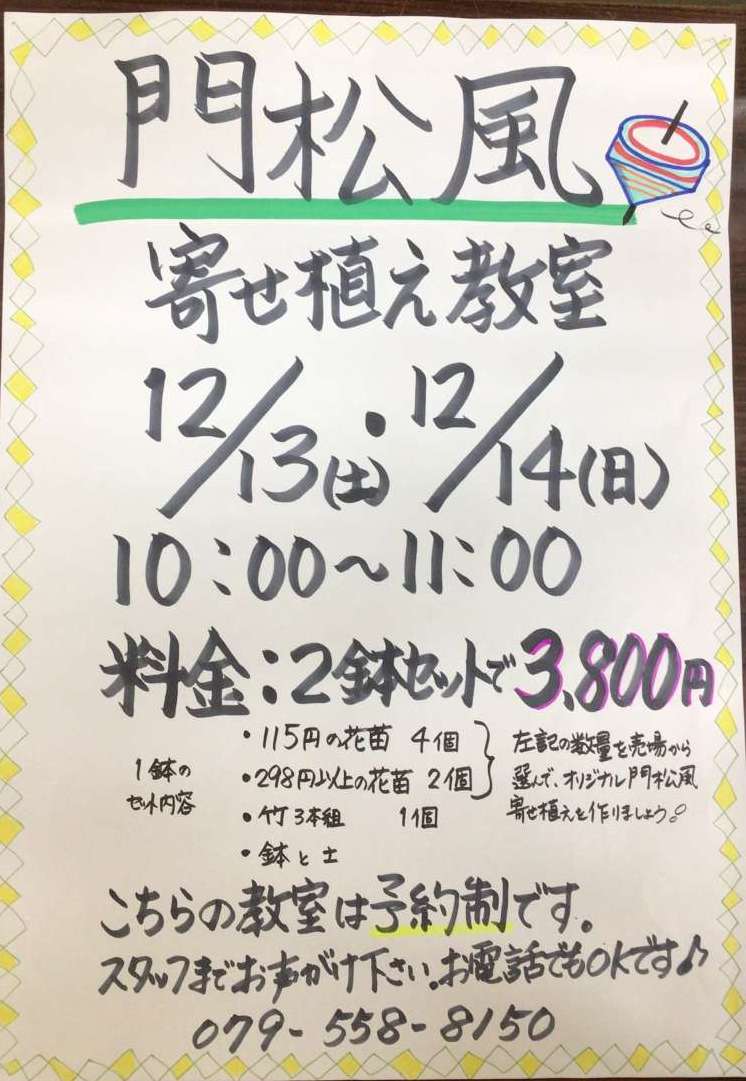 門松風
寄せ植え教室
12/13(土)・12/14(日)
10:00〜11:00
料金:2鉢セットで3,800円
1鉢の
セット内容
・115円の花苗 4個
・298円以上の花苗 2個
・竹3本組 1個
・鉢と土
左記の数量を売場から
選んで、オリジナル門松風
寄せ植えを作りましょう。
こちらの教室は予約制です。
スタッフまでお声がけ下さい。お電話でもOKです♪
079-558-8150